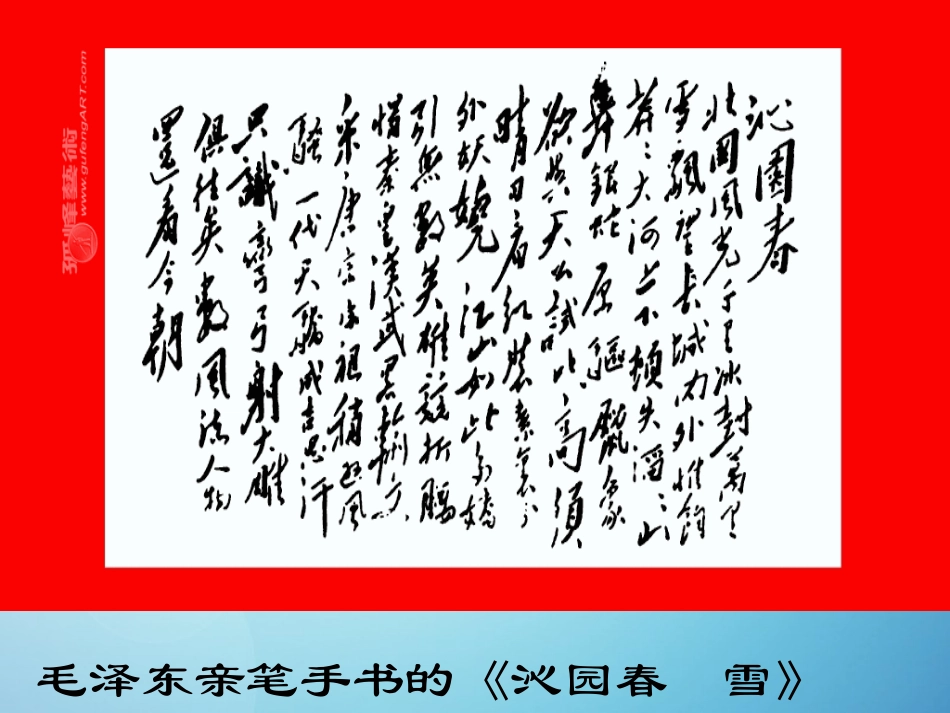 沁園春
北國風光千里冰封萬里
雪飄望長城內外惟餘
莽〻大河上下頓失滔〻山
舞銀蛇原驅臘象
欲與天公試比高須
晴日看紅裝素裹分
外妖嬈江山如此多嬌
引無數英雄競折腰
惜秦皇漢武略輸文
采唐宗宋祖稍遜風
騷一代天驕成吉思汗
只識彎弓射大雕
俱往矣數風流人物
還看今朝
孤峰藝術
www.gufengART.com
毛泽东亲笔手书的《沁园春 雪》